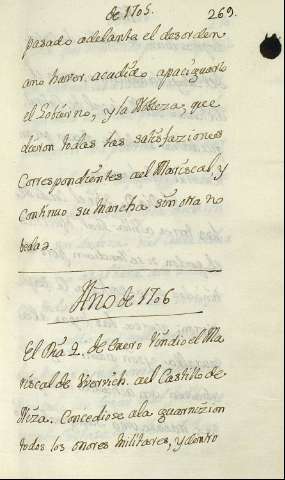 de 1705.
269.
pasado adelante el desorden
ano haver acudido apaciguarlo
el Govierno, y la Nobleza, que
dieron todas las satisfaziones
Correspondientes al Mariscal, y
Continuo su Marcha sin otra no
bedad.
Año de 1706
El Dia 2. de Enero rindio el Ma
riscal de Wervich. al Castillo de
Niza. Concediose ala guarnizion
todos los onores militares, y dentro